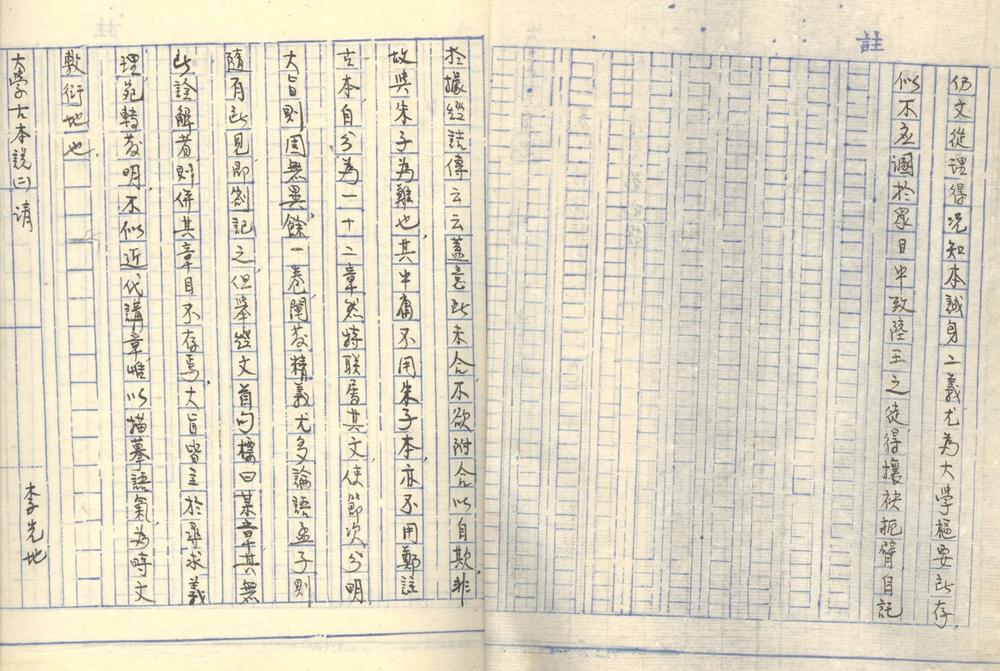 註
仍文從理得況知本誠身二義尤為大學樞要所存
似不應溷於眾目中致陸王之徒得攘袂扼臂自託
於據經詰傳云云蓋意所未合不欲附合以自欺非
故與朱子為難也其中庸不用朱子本亦不用鄭註
古本自分為一十二章然特聯屬其文使節次分明
大旨則固無異餘一卷闡發精義尤多論語孟子則
隨有所見即劄記之但舉經文首句標曰某章其無
所詮解者則併其章目不存焉大旨皆主於尋求義
理宛轉發明不似近代講章惟以描摹語氣為時文
敷衍地也
大學古本說(二)請 李光地